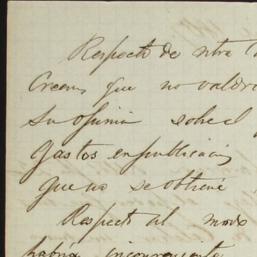 Respecto de ntra
Creemos que no valdr
su opinion sobre el
gastos en publicacion
que no se obtiene
Respecto al modo
habría inconveniente